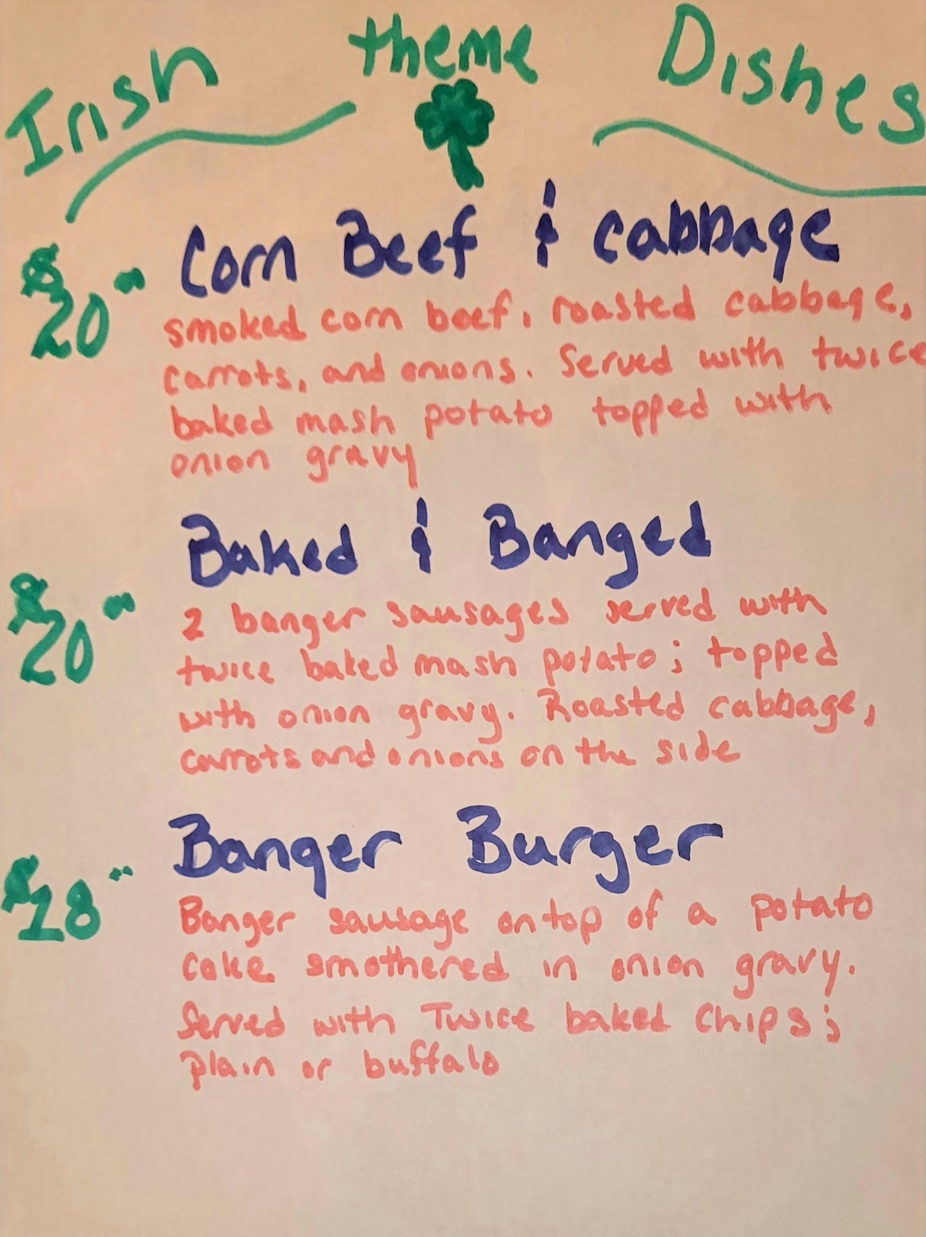 Irish theme Dishes
$20.00 Corn Beef & Cabbage
smoked corn beef, roasted cabbage,
carrots, and onions. Served with twice
baked mash potato topped with
onion gravy
$20.00 Baked & Banged
2 banger sausages served with
twice baked mash potato; topped
with onion gravy. Roasted cabbage,
carrots and onions on the side
$18.00 Banger Burger
Banger sausage on top of a potato
cake smothered in onion gravy.
Served with Twice baked Chips;
plain or buffalo